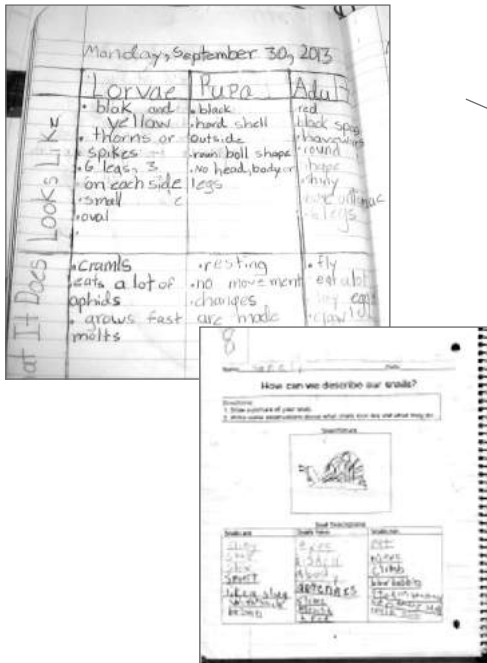 Manday, September 30, 2013
Lorvae Pupa Adul
Looks Like
• blak and yellow
• thorns or spikes
• 6 legs, 3 on each side
• small
• oval
• black
• hard shell outside
• roun boll shape
• no head, body or legs
red
black spots
round
shiny
6 legs
at It Does
• Cramls
eats a lot of aphids
• grows fast
molts
• resting
• no movement
• changes are made
• fly
eat a lot
lay eggs
8
Name
Date
How can we describe our snails?
Directions:
1. Draw a picture of your snail.
2. Write some observations about what snails look like and what they do.
Snail Picture
Snail Descriptions
Snails are
Snails have
Snails can
slimy
small
slow
smart
like a slug
brown
eyes
a shell
antennes
slime
eat
move
climb
blow bubbls